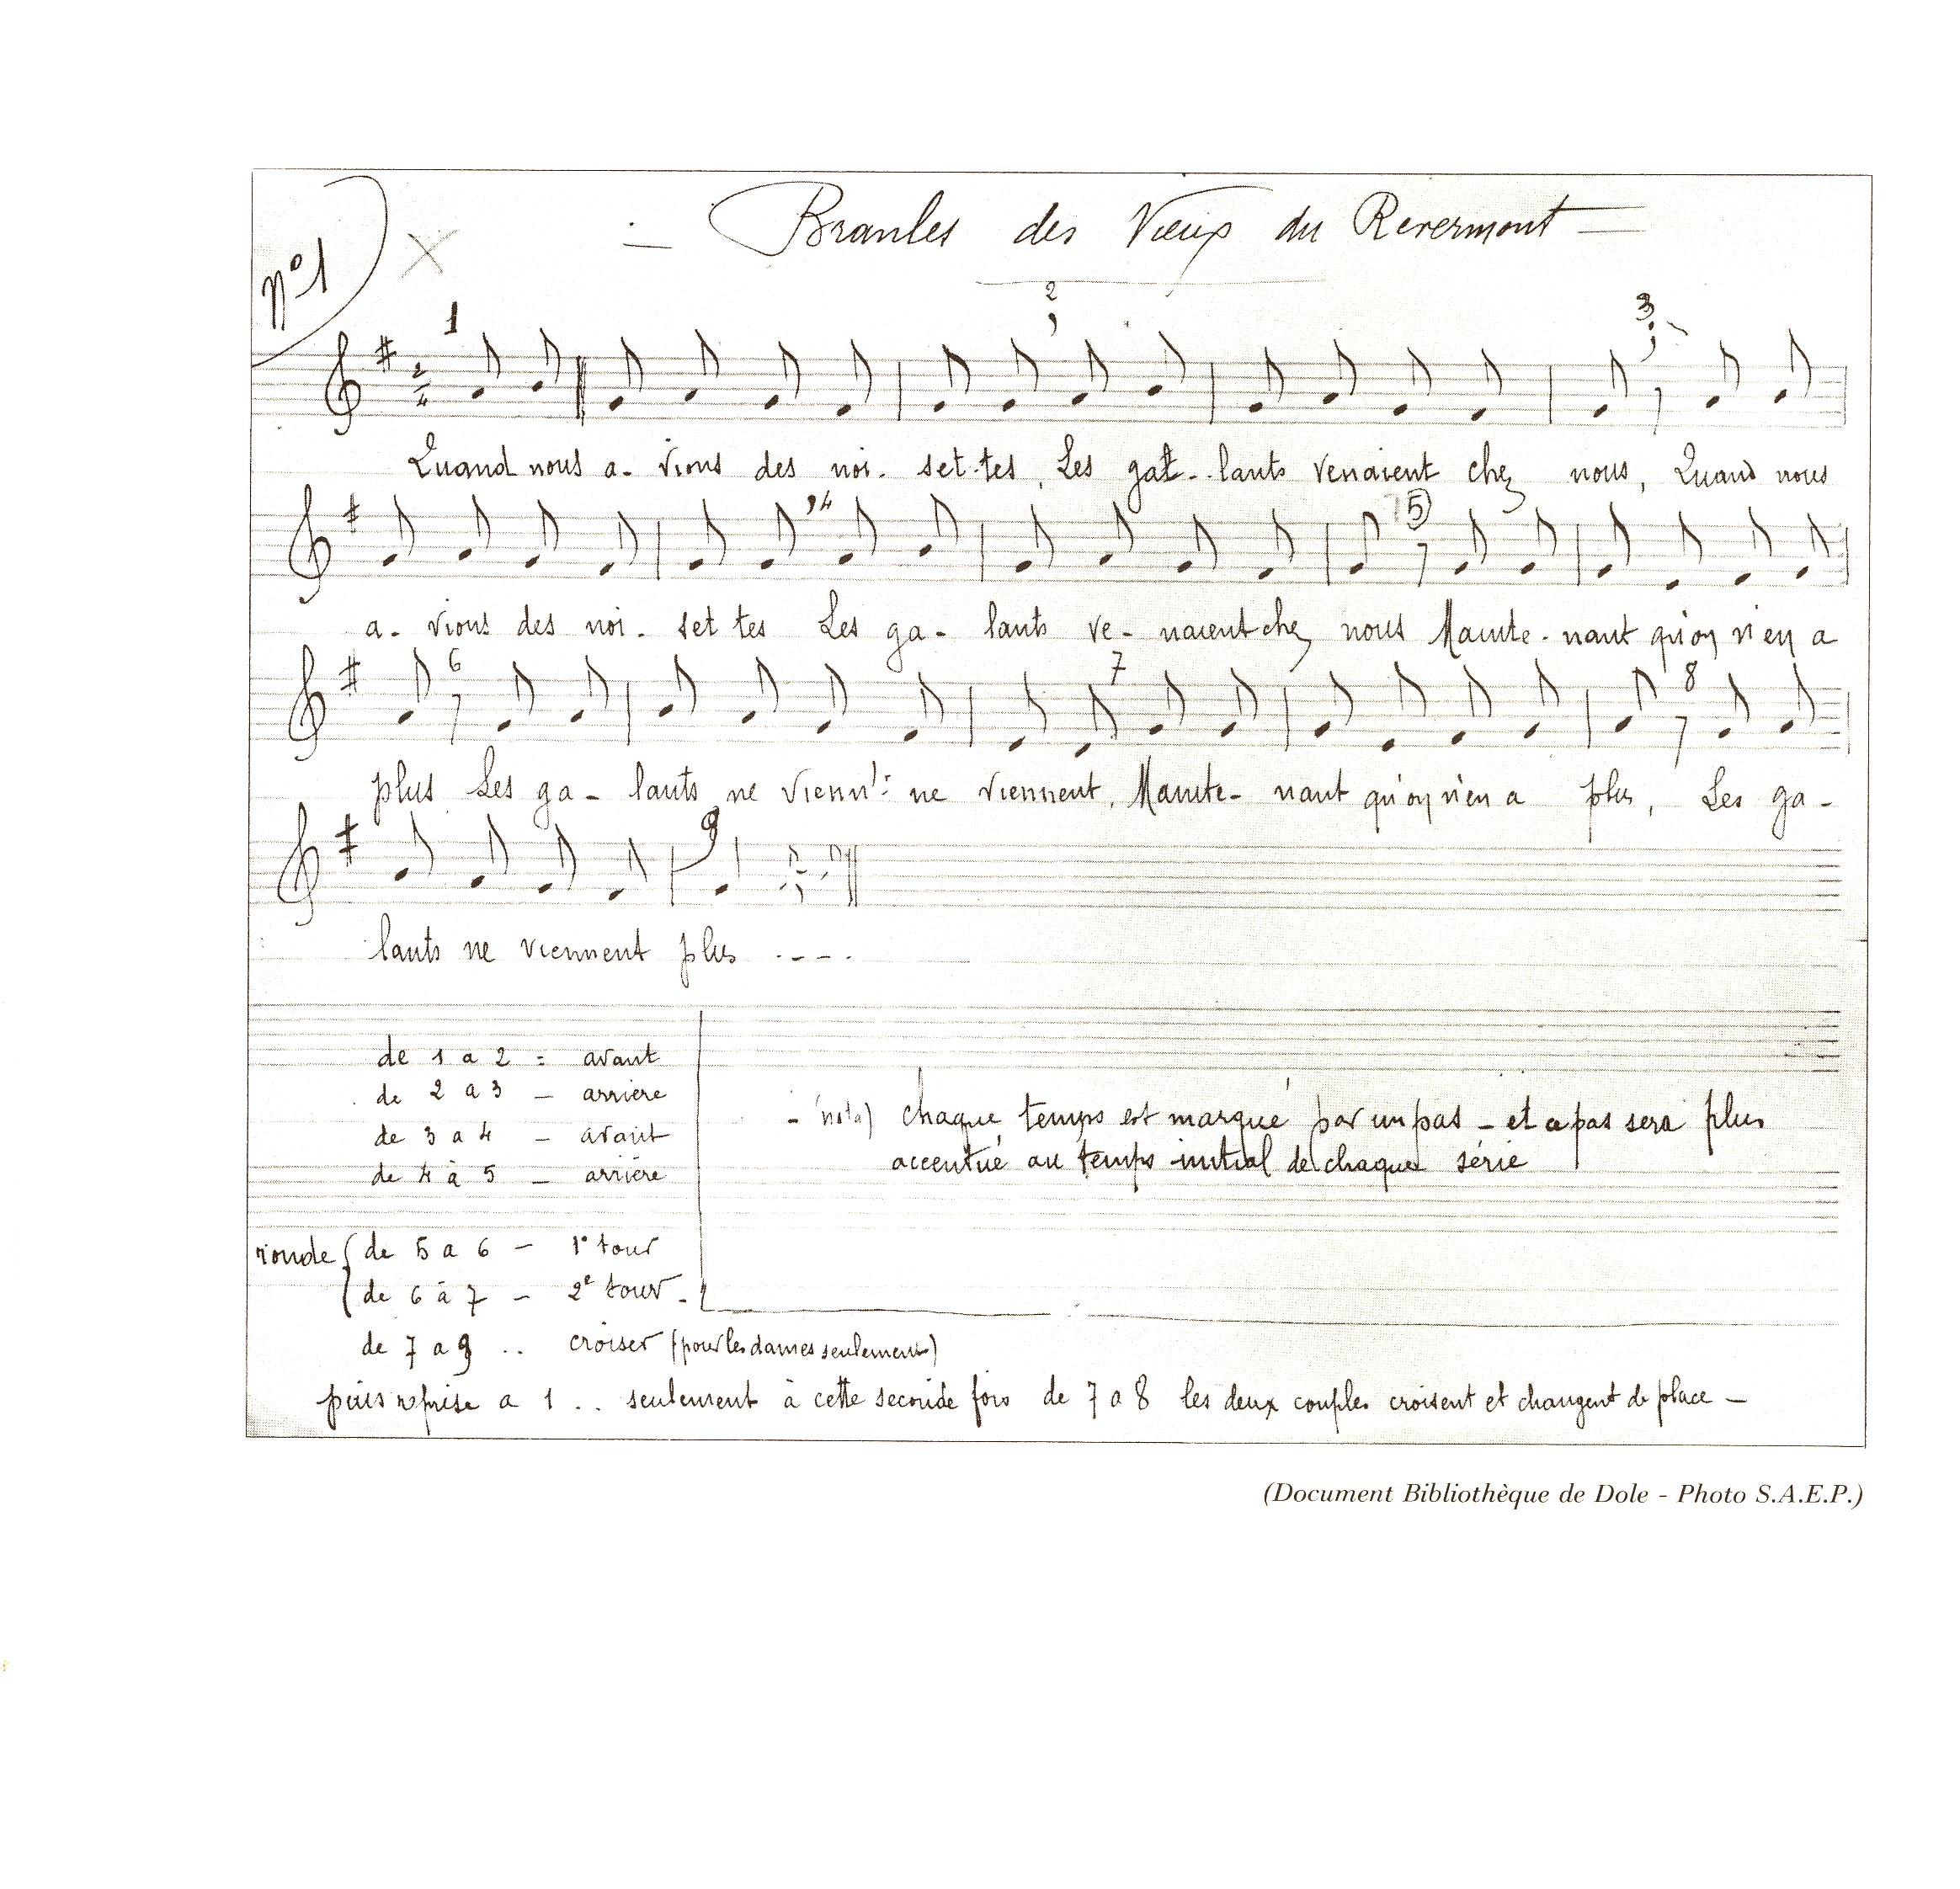 nº1
— Branles des Vieux du Revermont —
1 2 3
Quand nous a- vions des noi- set-tes, Les gal-lants venaient chez nous, Quand nous
4 5
a- vions des noi- set tes Les ga- lants ve- naient chez nous Mainte- nant qu'on n'en a
6 7 8
plus Les ga- lants ne vienn't ne viennent, Mainte- nant qu'on n'en a plus, Les ga-
9
lants ne viennent plus ....
de 1 a 2 = avant
de 2 a 3 — arrière
de 3 a 4 — avant
de 4 à 5 — arrière
- nota) chaque temps est marqué par un pas — et a pas sera plus
accentué au temps initial de chaque série
ronde { de 5 a 6 — 1º tour
de 6 à 7 — 2e tour -
de 7 a 9 .. croiser (pour les dames seulement)
puis reprise a 1 .. seulement à cette seconde fois de 7 a 8 les deux couples croisent et changent de place —
(Document Bibliothèque de Dole - Photo S.A.E.P.)